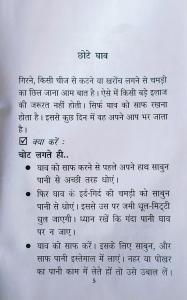 छोटे घाव
गिरने, किसी चीज से कटने या खरोंच लगने से चमड़ी
का छिल जाना आम बात है। ऐसे में किसी बड़े इलाज
की जरूरत नहीं होती। सिर्फ घाव को साफ रखना
होता है। इससे कुछ दिन में वह अपने आप भर जाता
है।
☑ क्या करें :
चोट लगते ही..
● घाव को साफ करने से पहले अपने हाथ साबुन
पानी से अच्छी तरह धोएं।
● फिर घाव के इर्द-गिर्द की चमड़ी को साबुन
पानी से धोएं। इससे उस पर जमी धूल-मिट्टी
धुल जाएगी। ध्यान रखें कि गंदा पानी घाव
पर न जाए।
● घाव को साफ करें। इसके लिए साबुन, और
साफ पानी इस्तेमाल में लाएं। नहर या पोखर
का पानी काम में लेते हों तो उसे उबाल लें।
5